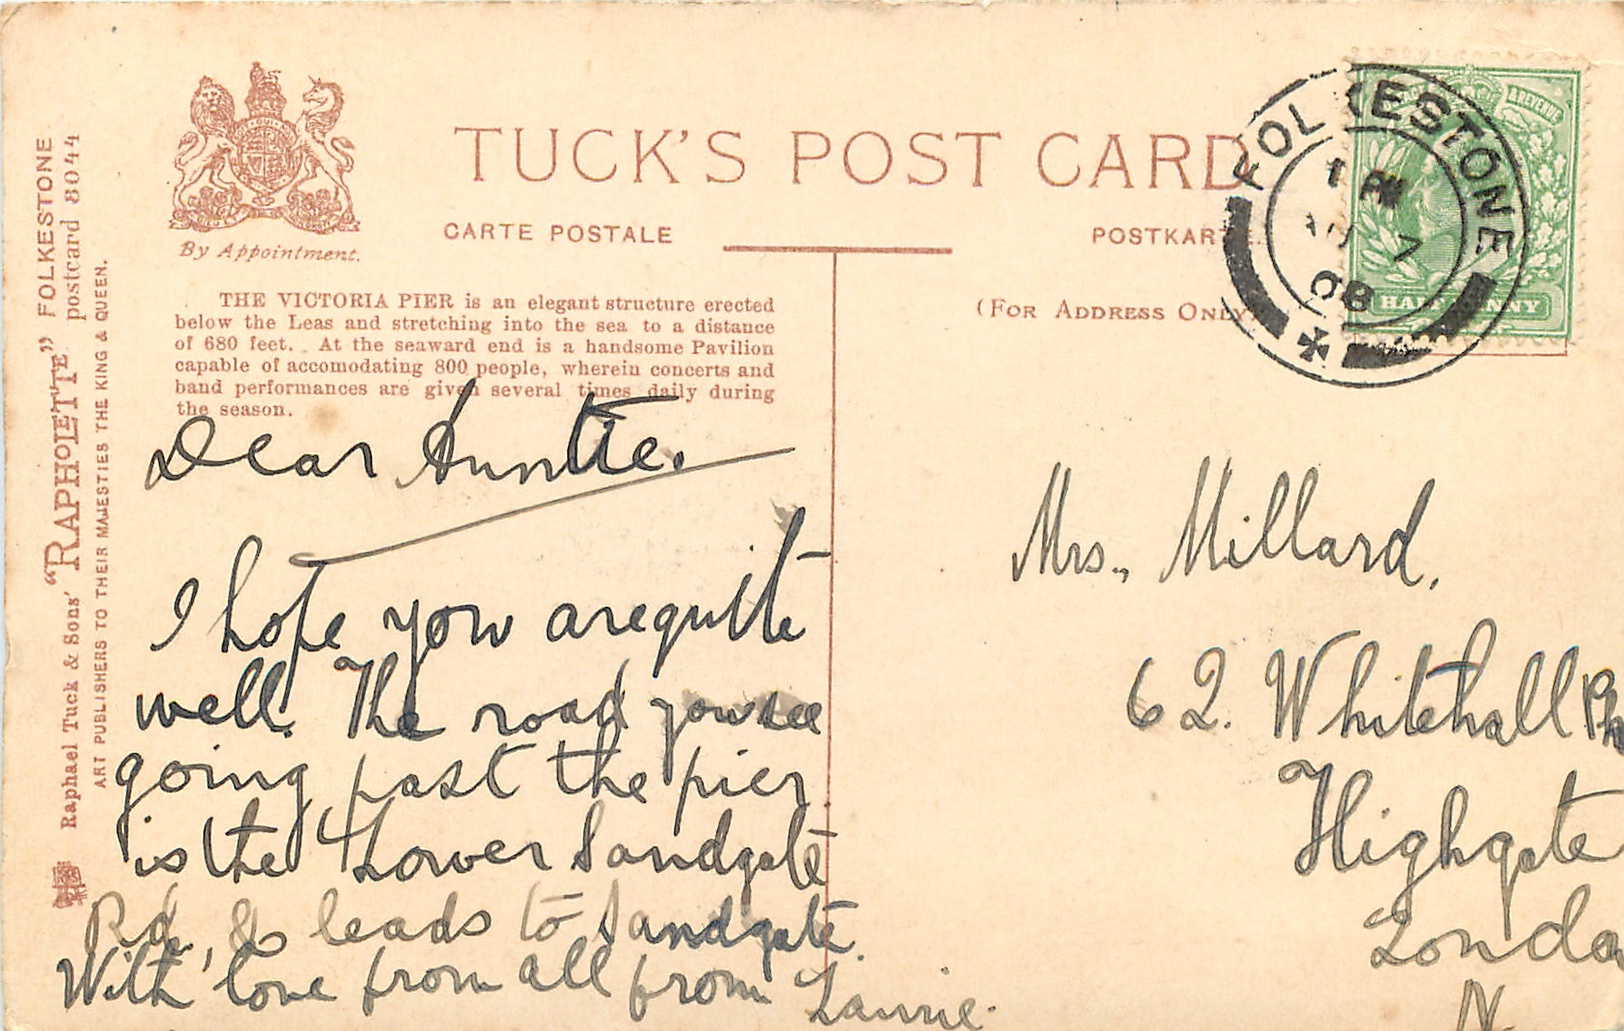 TUCK'S POST CARD
CARTE POSTALE
POSTKARTE.
By Appointment.
(FOR ADDRESS ONLY)
THE VICTORIA PIER is an elegant structure erected
below the Leas and stretching into the sea to a distance
of 680 feet. At the seaward end is a handsome Pavilion
capable of accomodating 800 people, wherein concerts and
band performances are given several times daily during
the season.
Raphael Tuck & Sons' "RAPHOLETTE" FOLKESTONE
postcard 8044
ART PUBLISHERS TO THEIR MAJESTIES THE KING & QUEEN.
FOLKESTONE
1 PM
7
08
& REVENUE
HALFPENNY
Dear Auntie.
I hope you are quite
well. The road you see
going past the pier
is the Lower Sandgate
Rd, & leads to Sandgate.
With love from all from Laurie.
Mrs. Millard,
62. Whitehall Pk
Highgate
London
N